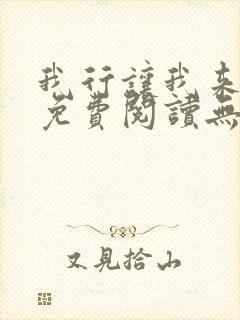 我行讓我来
免費閱讀無
又見拾山